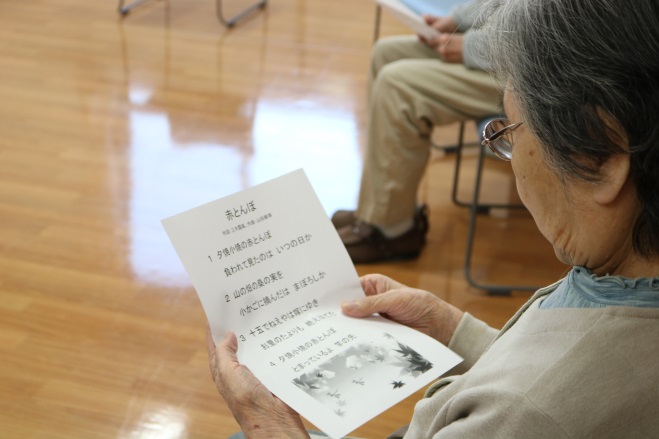 赤とんぼ
作詞 三木露風、作曲 山田耕筰
1 夕焼小焼の赤とんぼ
負われて見たのは いつの日か
2 山の畑の桑の実を
小かごに摘んだは まぼろしか
3 十五でねえやは嫁にゆき
お里のたよりも 絶えはてた
4 夕焼小焼の赤とんぼ
とまっているよ 竿の先